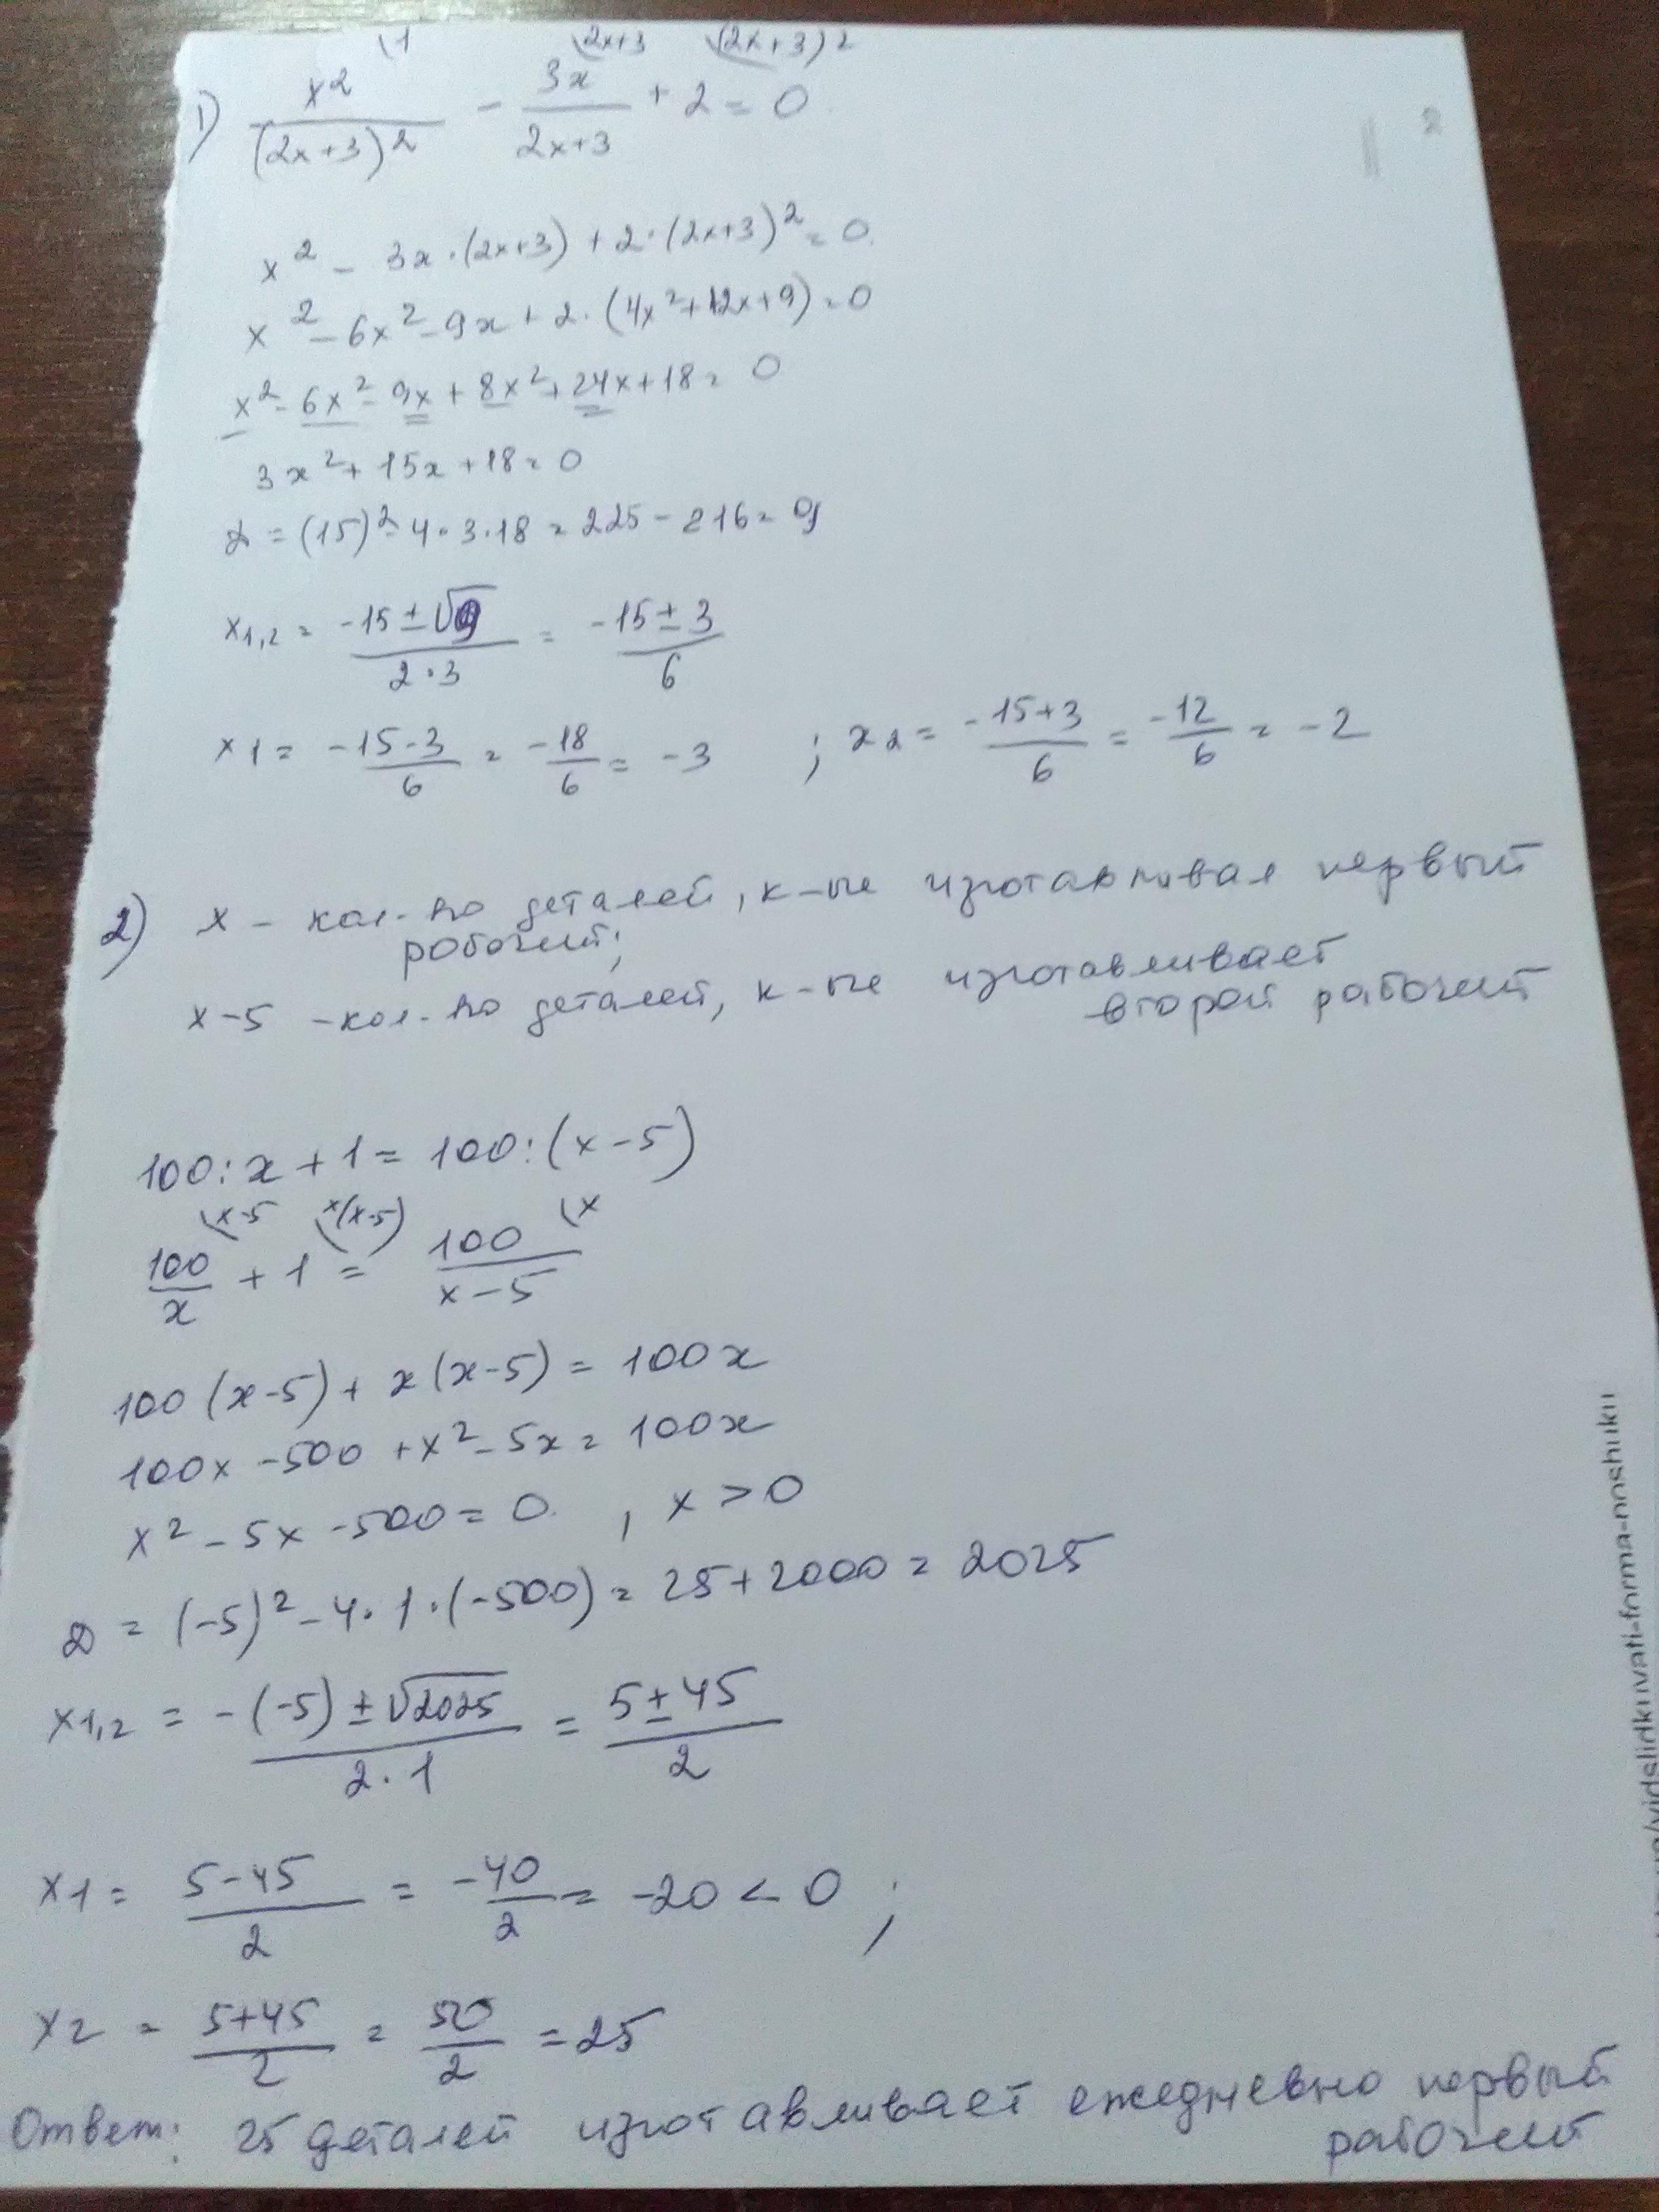 \1 \2x+3 \(2x+3)2
1) x²/(2x+3)² - 3x/2x+3 + 2 = 0
x² - 3x·(2x+3) + 2·(2x+3)² = 0
x² - 6x² - 9x + 2·(4x²+12x+9) = 0
x² - 6x² - 9x + 8x² + 24x + 18 = 0
3x² + 15x + 18 = 0
D = (15)² - 4·3·18 = 225 - 216 = 9
x1,2 = -15±√9/2·3 = -15±3/6
x1 = -15-3/6 = -18/6 = -3 ; x2 = -15+3/6 = -12/6 = -2
2) x - кол-во деталей, к-ые изготавливал первый
рабочий;
x-5 - кол-во деталей, к-ые изготавливает
второй рабочий
100:x + 1 = 100:(x-5)
\x-5 \x(x-5) \x
100/x + 1 = 100/x-5
100(x-5) + x(x-5) = 100x
100x - 500 + x² - 5x = 100x
x² - 5x - 500 = 0. , x > 0
D = (-5)² - 4·1·(-500) = 25 + 2000 = 2025
x1,2 = -(-5)±√2025/2·1 = 5±45/2
x1 = 5-45/2 = -40/2 = -20 < 0 ;
x2 = 5+45/2 = 50/2 = 25
Ответ: 25 деталей изготавливает ежедневно первый
рабочий
2
/vidslidkuvati-forma-poshuku